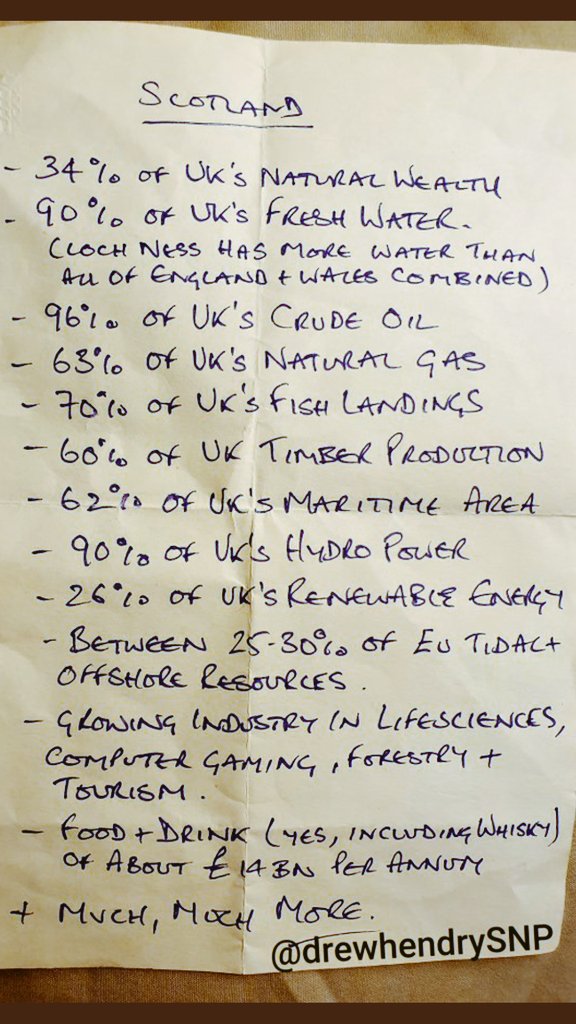 SCOTLAND
- 34% OF UK'S NATURAL WEALTH
- 90% OF UK'S FRESH WATER.
(LOCH NESS HAS MORE WATER THAN
ALL OF ENGLAND + WALES COMBINED)
- 96% OF UK'S CRUDE OIL
- 63% OF UK'S NATURAL GAS
- 70% OF UK'S FISH LANDINGS
- 60% OF UK TIMBER PRODUCTION
- 62% OF UK'S MARITIME AREA
- 90% OF UK'S HYDRO POWER
- 26% OF UK'S RENEWABLE ENERGY
- BETWEEN 25-30% OF EU TIDAL +
OFFSHORE RESOURCES.
- GROWING INDUSTRY IN LIFESCIENCES,
COMPUTER GAMING, FORESTRY +
TOURISM.
- FOOD + DRINK (YES, INCLUDING WHISKY)
OF ABOUT £14 BN PER ANNUM
+ MUCH, MUCH MORE.
@drewhendrySNP